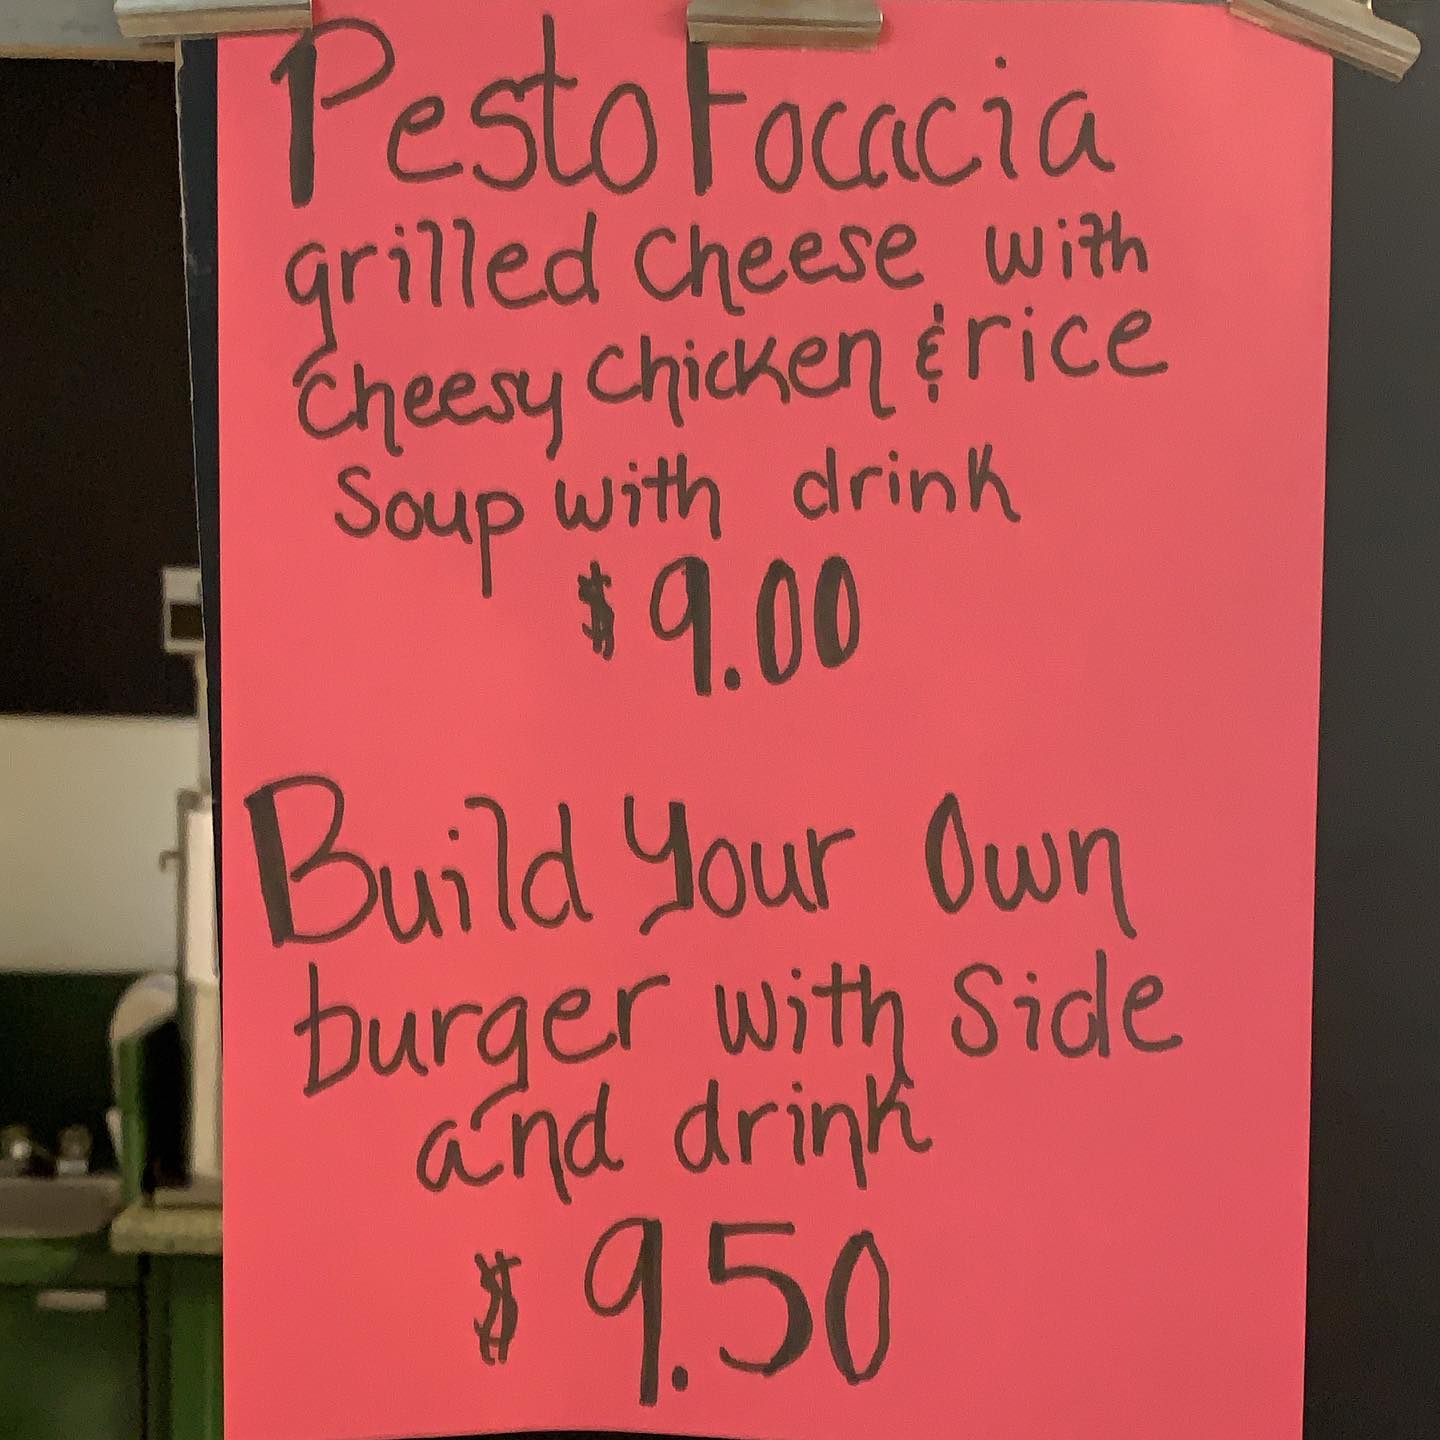 Pesto Focacia
grilled cheese with
cheesy chicken & rice
Soup with drink
$9.00
Build Your Own
burger with Side
and drink
$9.50